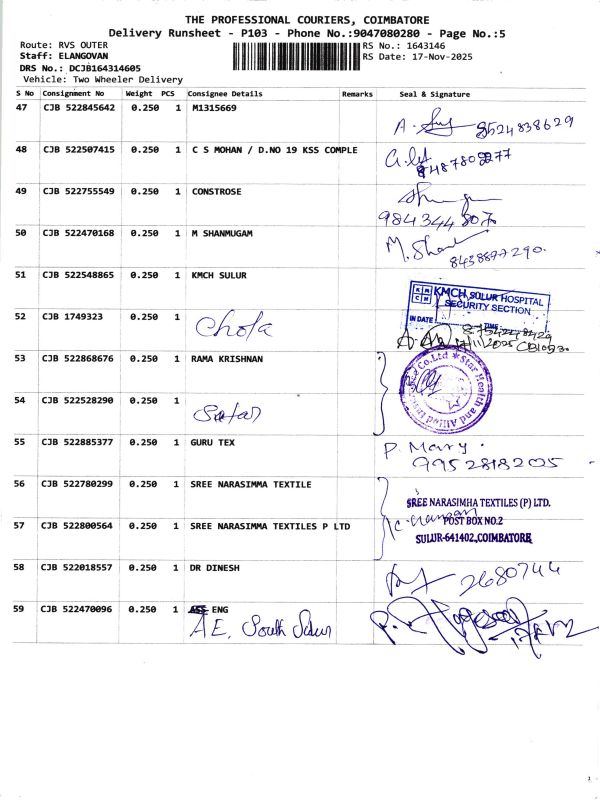 THE PROFESSIONAL COURIERS, COIMBATORE
Delivery Runsheet - P103 - Phone No.:9047080280 - Page No.:5
Route: RVS OUTER
RS No.: 1643146
Staff: ELANGOVAN
RS Date: 17-Nov-2025
DRS No.: DCJB164314605
Vehicle: Two Wheeler Delivery
S No Consignment No Weight PCS Consignee Details Remarks Seal & Signature
47 CJB 522845642 0.250 1 M1315669
8524838629
48 CJB 522507415 0.250 1 C S MOHAN / D.NO 19 KSS COMPLE
49 CJB 522755549 0.250 1 CONSTROSE
50 CJB 522470168 0.250 1 M SHANMUGAM
M. Shan
8438877290.
51 CJB 522548865 0.250 1 KMCH SULUR
KMCH SULUR HOSPITAL
SECURITY SECTION
IN DATE TIME
52 CJB 1749323 0.250 1 Chola
53 CJB 522868676 0.250 1 RAMA KRISHNAN
Star Health and Allied Insurance Co.Ltd
54 CJB 522528290 0.250 1
55 CJB 522885377 0.250 1 GURU TEX
P. Mary.
9952818205
56 CJB 522780299 0.250 1 SREE NARASIMMA TEXTILE
SREE NARASIMHA TEXTILES (P) LTD.
57 CJB 522800564 0.250 1 SREE NARASIMMA TEXTILES P LTD
POST BOX NO.2
SULUR-641402,COIMBATORE
58 CJB 522018557 0.250 1 DR DINESH
2680744
59 CJB 522470096 0.250 1 ENG
AE, South Sulur
1